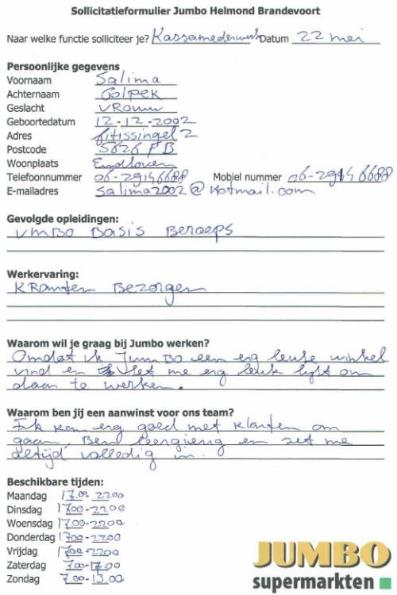 Sollicitatieformulier Jumbo Helmond Brandevoort
Naar welke functie solliciteer je? Kassamedewerk Datum 22 mei
Persoonlijke gegevens
Voornaam Salima
Achternaam Golpek
Geslacht vrouw
Geboortedatum 12-12-2002
Adres 2
Postcode 5626 PB
Woonplaats Eindhoven
Telefoonnummer 06-29146688 Mobiel nummer 06-29146688
E-mailadres Salima2002@hotmail.com
Gevolgde opleidingen:
VMBO Basis Beroeps
Werkervaring:
KRanten Bezorgen
Waarom wil je graag bij Jumbo werken?
Omdat ik Jumbo een erg leuke winkel
vind en het me erg leuk lijkt om
daar te werken.
Waarom ben jij een aanwinst voor ons team?
Ik kan erg goed met klanten om
gaan, Ben en zet me
altijd volledig in.
Beschikbare tijden:
Maandag 17.00-22.00
Dinsdag 17.00-22.00
Woensdag 17.00-22.00
Donderdag 17.00-22.00
Vrijdag 17.00-22.00
Zaterdag 7.00-17.00
Zondag 7.00-13.00
JUMBO
supermarkten